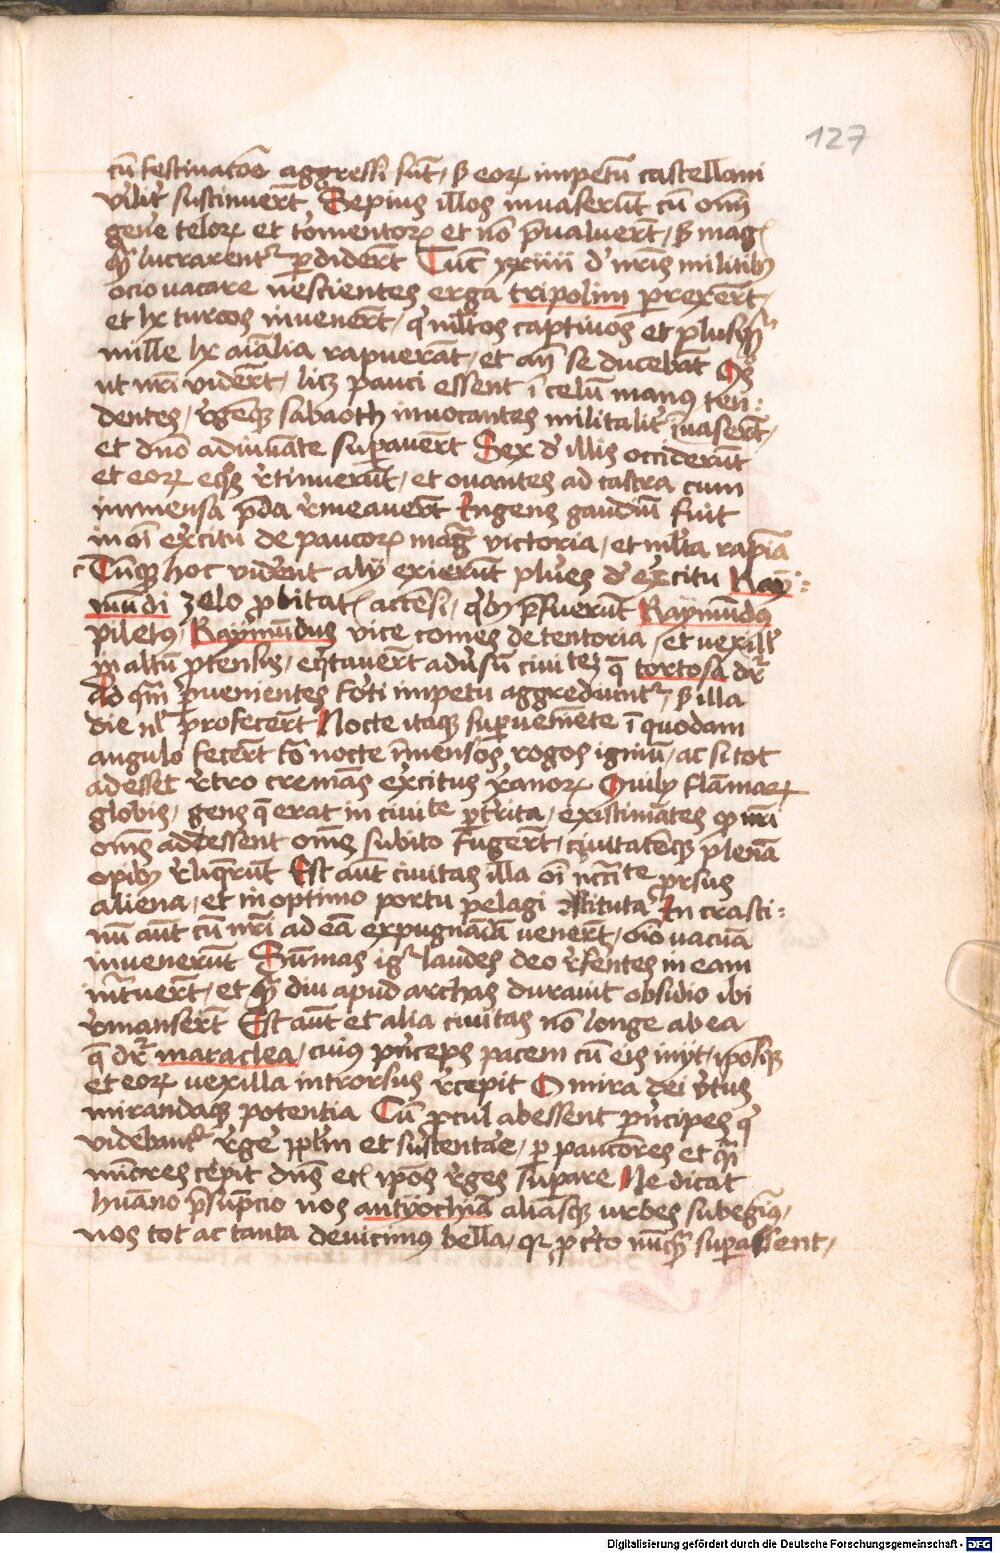 127
cū festinatōe aggressi sūt, s̄ eoꝝ impetū castellani
vilit' sustinuerūt Sepius illos inuaserūt cū omī
gen̄e teloꝝ et tormentoꝝ et nō p̄ualuerūt, s̄ mag̓
q̄ lucrarent' ꝑdiderūt Tūc xxiiii d' nr̄is militibꝰ
ocio vacare nescientes erga tripolim ꝑrexerūt,
et lx turcos inuenerūt, q̇ ml̓tos captiuos et plusq̄ꝫ
mille lx aīalia rapuerāt, et cū se ducebāt Qōs
ut nr̄i viderūt, licꝫ pauci essent ī celū manꝰ ten:
dentes, r̄gēqꝫ sabaoth inuocantes militalit' īuaserūt,
et dn̄o adiuuāte suꝑauerūt Sex d' illis occiderūt
et eoꝝ eq̄os r̄tinuerūt, et ouantes ad castra cum
immensa p̄da r̄meauerūt Ingens gaudiū fuit
in oī ex̄citu de paucoꝝ maḡ victoria, et ml̓ta rapīa
Cūqꝫ hoc vider̄nt alij exierūt plur̄es d' ex̄citu Ray:
mūdi zelo ꝓbitat̓ accēsi, q̇bꝰ p̄fuerūt Raymūdꝰ
piletꝰ, Raymūdus vice comes de tentoria, et vexill̓
ī altū ꝓtensis, eq̇tauerūt adūsū ciuitēs q̄ tortosa dr̄
Ad q̄m ꝑuenientes foīti impetu aggrediunt', s̄ illa
die nl̓ ꝓfecerūt Nocte itaqꝫ superueniēte ī quodam
angulo fecerūt tō nocte īmensos rogos igniū, ac si tot
adesset r̄tro cremās ex̄citus xānoꝝ Quily flāmaꝝ
globis, gens q̄ erat in ciuitē ꝑt̓rita, existimātes ꝙ nr̄i
omēs addessent omēs subito fugerūt, ciuitatēqꝫ plenā
opibꝰ r̄liq̄rūt Est aūt ciuitas illa oī nc̄cīte ꝓrsus
aliena, et in optimo portu pelagi ꝯstituta In crasti:
nū aūt cū nr̄i ad eā expugnādā venerūt, oīo vacuā
inuenerūt Sūmas ig̓ laudes deo r̄ferentes in eam
int̄uerūt, et q̄ diu apud archas durauit obsidio ibi
r̄manserūt Est aūt et alia ciuitas nō longe ab ea
q̄ dr̄ maraclea, cuiꝰ pn̄ceps pacem cū eis inijt, ipōsqꝫ
et eoꝝ vexilla introrsus r̄cepit O mira dei v̄tus
mirandaqꝫ potentia Cū ꝓcul abessent pn̄cipes q̇
videbant' r̄ge ꝓplm̄ et sustentare, ꝑ pauciores et q̄i
miōres cepit dn̄s et̓ ipōs r̄ges suꝑare Ne dicat
huāno p̄sūpcio nos antiochiā aliasqꝫ urbes subegimꝰ,
nos tot ac tanta deuicimꝰ bella, qꝛ ꝓcīto nūqꝫ suꝑassent,
Digitalisierung gefördert durch die Deutsche Forschungsgemeinschaft - DFG